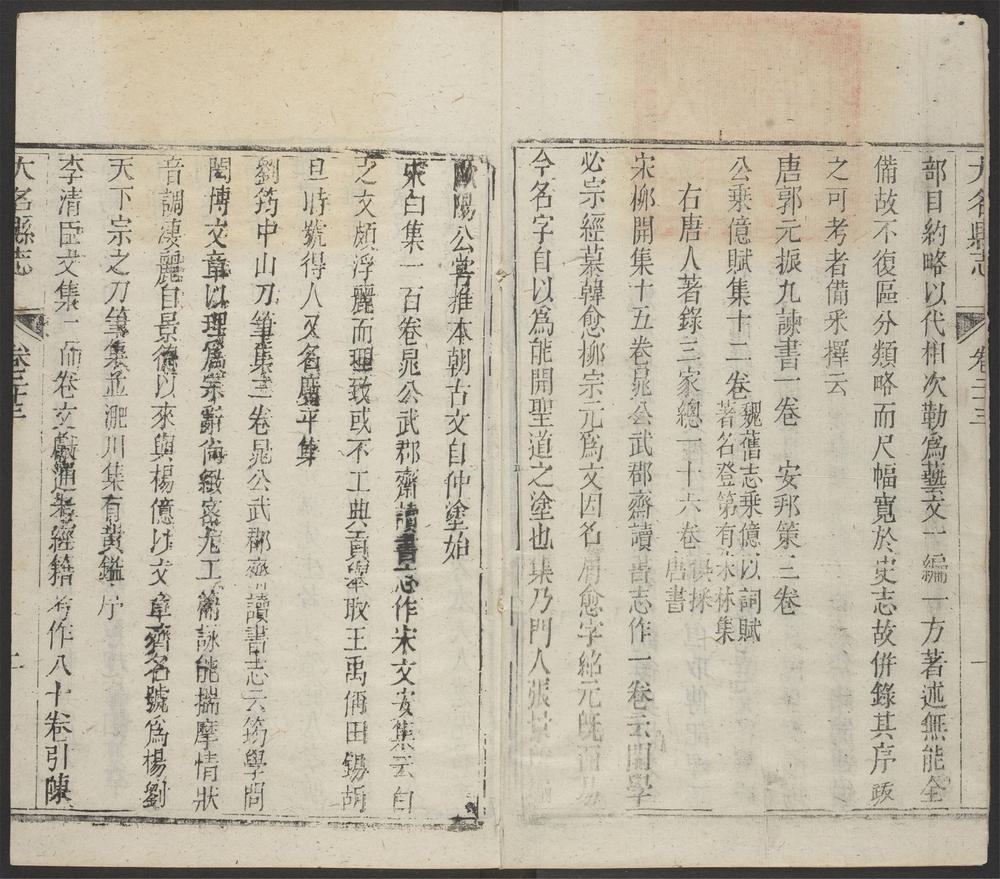 大名縣志 卷二十三 一
部目約略以代相次勒為藝文一編一方著述無能全
備故不復區分類略而尺幅寬於史志故併錄其序䟦
之可考者備釆擇云
唐郭元振九諫書一卷 安邦策三卷
公乘億賦集十二卷 魏舊志乘億以詞賦
著名登第有珠林集
右唐人著錄三家總一十六卷 俱採
唐書
宋柳開集十五卷晁公武郡齋讀書志作一卷云開學
必宗經慕韓愈柳宗元為文因名肩愈字紹元旣而易
今名字自以爲能開聖道之塗也集乃門人張景
歐陽公嘗推本朝古文自仲塗始
宋白集一百卷晁公武郡齋讀書志作宋文安集云白
之文頗浮麗而理致或不工典貢舉取王禹偁田錫胡
旦時號得人又名廣平集
劉筠中山刀筆集三卷晁公武郡齋讀書志云筠學問
閎博文章以理爲宗辭尚緻密尤工篇詠能揣摩情狀
音調淒麗自景德以來與楊億以文章齊名號爲楊劉
天下宗之刀筆集並淝川集有黃鑑序
李清臣文集一百卷文獻通考經籍考作八十卷引陳
大名縣志 卷二十三 二